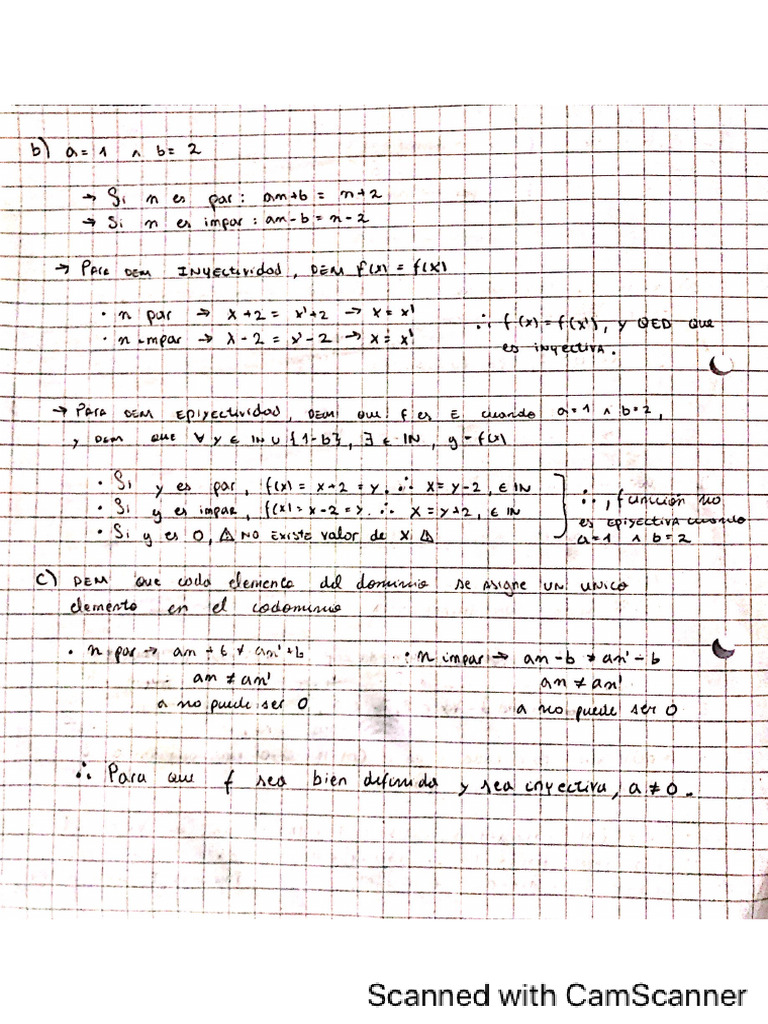 b) a = 1 ∧ b = 2
→ Si n es par: an+b = n+2
→ Si n es impar: an-b = n-2
→ Para DEM INyectividad, DEM f(x) = f(x)
• n par → x+2 = x'+2 → x = x'
• n impar → x-2 = x'-2 → x = x'
∴ f(x) = f(x'), y QED que
es inyectiva.
→ Para DEM Epiyectividad, DEM que f es E cuando a=1 ∧ b=2,
y DEM que ∀ y ∈ IN ∪ {1-b}, ∃ ∈ IN, y = f(x)
• Si y es par, f(x) = x+2 = y. ∴ x = y-2, ∈ IN
• Si y es impar, f(x) = x-2 = y. ∴ x = y+2, ∈ IN
• Si y es 0, ⚠ NO EXISTE valor de x ⚠
∴, función no
es Epiyectiva cuando
a=1 ∧ b=2
c) DEM que cada elemento del dominio se asigne UN UNICO
elemento en el codominio
• n par → an + b ≠ an'+b
an ≠ an'
a no puede ser 0
• n impar → an-b ≠ an'-b
an ≠ an'
a no puede ser 0
∴ Para que f sea bien definida y sea inyectiva, a ≠ 0.
Scanned with CamScanner